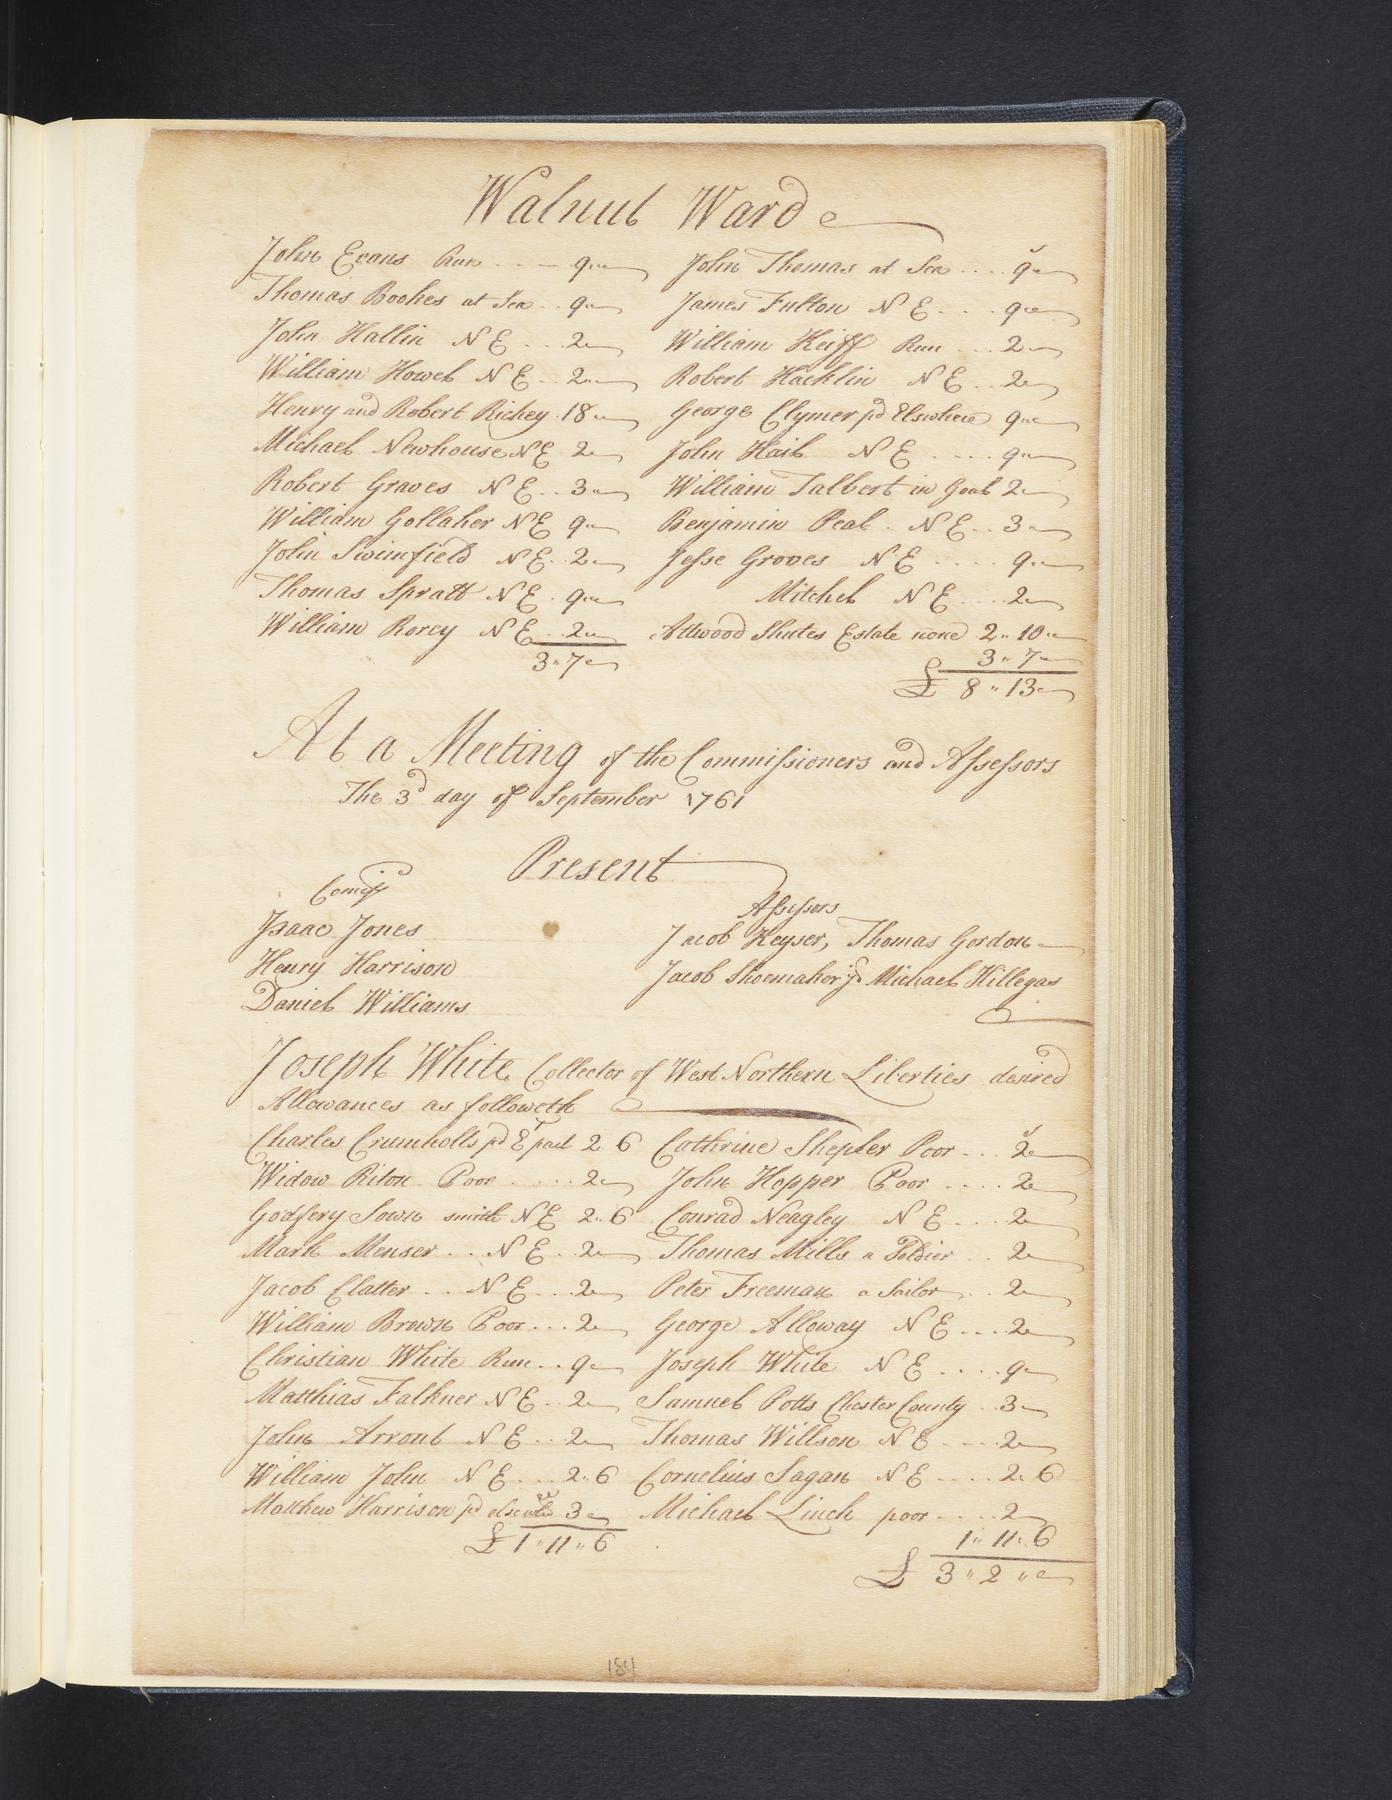 Walnut Ward
John Evans Run - - - 9 „ John Thomas at Sea .... 9s „
Thomas Bookes at Sea .. 9 „ James Fulton N E ... 9 „
John Hallin N E ... 2 „ William Keiff Run ... 2 „
William Howel N E .. 2 „ Robert Hacklin N E .. 2 „
Henry and Robert Richey . 18 „ George Clymer pd Elswhere 9 „
Michael Newhouse N E 2 „ John Hail N E .... 9 „
Robert Graves N E .. 3 „ William Talbert in Goal 2 „
William Gollaher N E 9 „ Benjamin Peal . N E .. 3 „
John Swinfield N E .. 2 „ Jesse Groves N E .... 9 „
Thomas Spratt N E . 9 „ Mitchel N E .... 2 „
William Rorey N E .. 2 „ Attwood Shutes Estate none 2 „ 10 „
3 „ 7 „ 3 „ 7 „
£ 8 „ 13 „
At a Meeting of the Commissioners and Assessors
The 3d day of September 1761
Present
Comrs
Assessors
Isaac Jones Jacob Keyser, Thomas Gordon
Henry Harrison Jacob Shoemaker Jr Michael Hillegas
Daniel Williams
Joseph White Collector of West Northern Liberties desired
Allowances as followeth
Charles Crumholts pd E part 2 6 Cathrine Shepler Poor ... 2s „
Widow Riton Poor ..... 2 „ John Hopper Poor .... 2 „
Godfery Sown smith N E 2 „ 6 Conrad Neagley N E ... 2 „
Mark Menser .. N E .. 2 „ Thomas Mills a Soldier .. 2 „
Jacob Clatter .. N E ... 2 „ Peter Freeman a Sailor .. 2 „
William Brown Poor ... 2 „ George Alloway N E .... 2 „
Christian White Run .. 9 „ Joseph White N E .... 9 „
Matthias Falkner N E .. 2 „ Samuel Potts Chester County .. 3 „
John Arront N E .. 2 „ Thomas Willson N E .... 2 „
William John N E ... 2 „ 6 Cornelius Sagan N E .... 2 „ 6
Matthew Harrison pd elsewhe 3 „ Michael Linch poor .... 2 „
£ 1 „ 11 „ 6 1 „ 11 „ 6
£ 3 „ 2 „ „